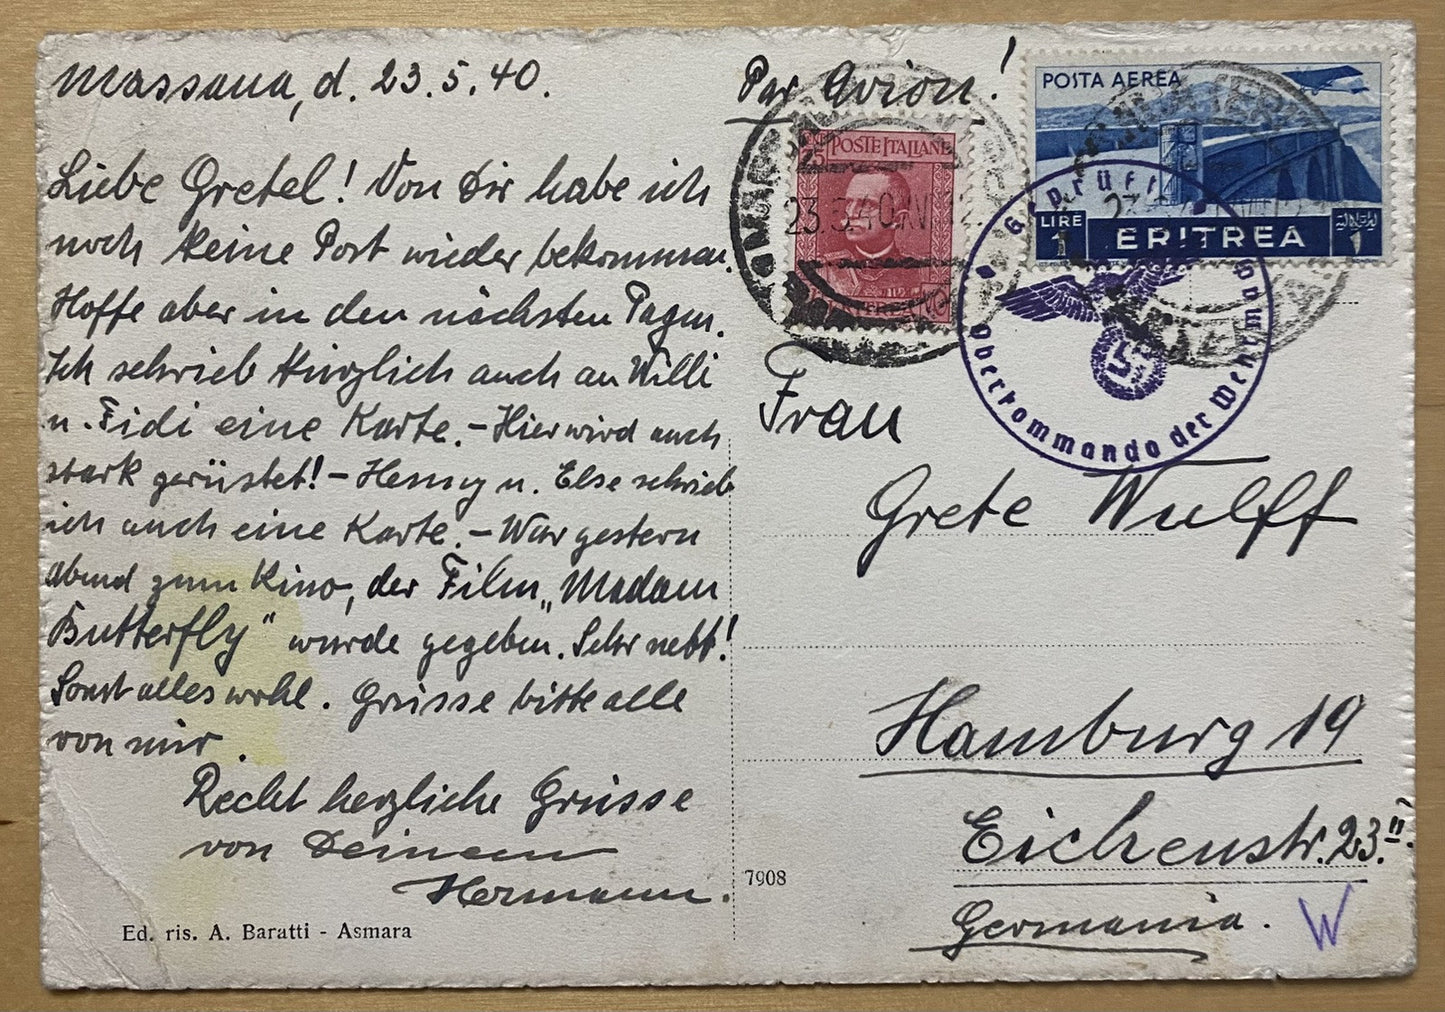 Massaua, d. 23.5.40.
Liebe Gretel! Von Dir habe ich
noch keine Post wieder bekommen.
Hoffe aber in den nächsten Tagen.
Ich schrieb kürzlich auch an Willi
u. Fidi eine Karte. - Hier wird auch
stark gerüstet! - Henny u. Else schrieb
ich auch eine Karte. - War gestern
abend zum Kino, der Film „Madam
Butterfly" wurde gegeben. Sehr nett!
Sonst alles wohl. Grüsse bitte alle
von mir.
Recht herzliche Grüsse
von Deinem
Hermann.
Ed. ris. A. Baratti - Asmara
7908
Par Avion!
POSTE ITALIANE
75
ERITREA
23.5.40.XV
POSTA AEREA
LIRE
1
ERITREA
Geprüft
Oberkommando der Wehrmacht
Frau
Grete Wulff
Hamburg 19
Eichenstr. 23.II.
Germania.
W